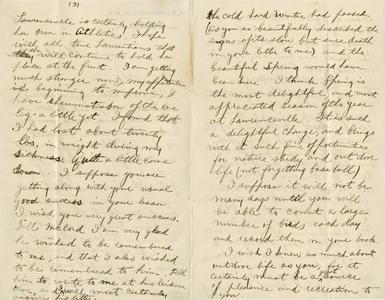 (3)
Lawrenceville is certainly holding
her own in Athletics. I hope
with all true Laurentians that
they will continue to hold her
place at the front. I am getting
much stronger now, my appetite
is beginning to improve, I
have rheumatism of the one
leg a little yet. I found that
I had lost about twenty
lbs. in weight during my
sickness. Quite a little come
down. I suppose you are
getting along with your usual
good success in your
I wish you very great success.
Tell McCord I am very glad
he wished to be remembered
to me, and that I also wished
to be remembered to him, tell
him to write to me at his leisure
and I most certainly
answer his letter.
the cold hard Winter had passed,
(as you so beautifully described the
signs of its slow but sure death
in your letter to me) and the
beautiful Spring would have
been here. I think Spring is
the most delightful and most
appreciated season of the year
at Lawrenceville. It is such
a delightful change, and brings
with it such fine opportunities
for nature study and out door
life (not forgetting baseball)
I suppose it will not be
many days until you will
be able to count a large
number of birds each day
and record them in your book.
I wish I knew as much
about outdoor life as you, it
certainly must be a
of pleasure and recreation to
you